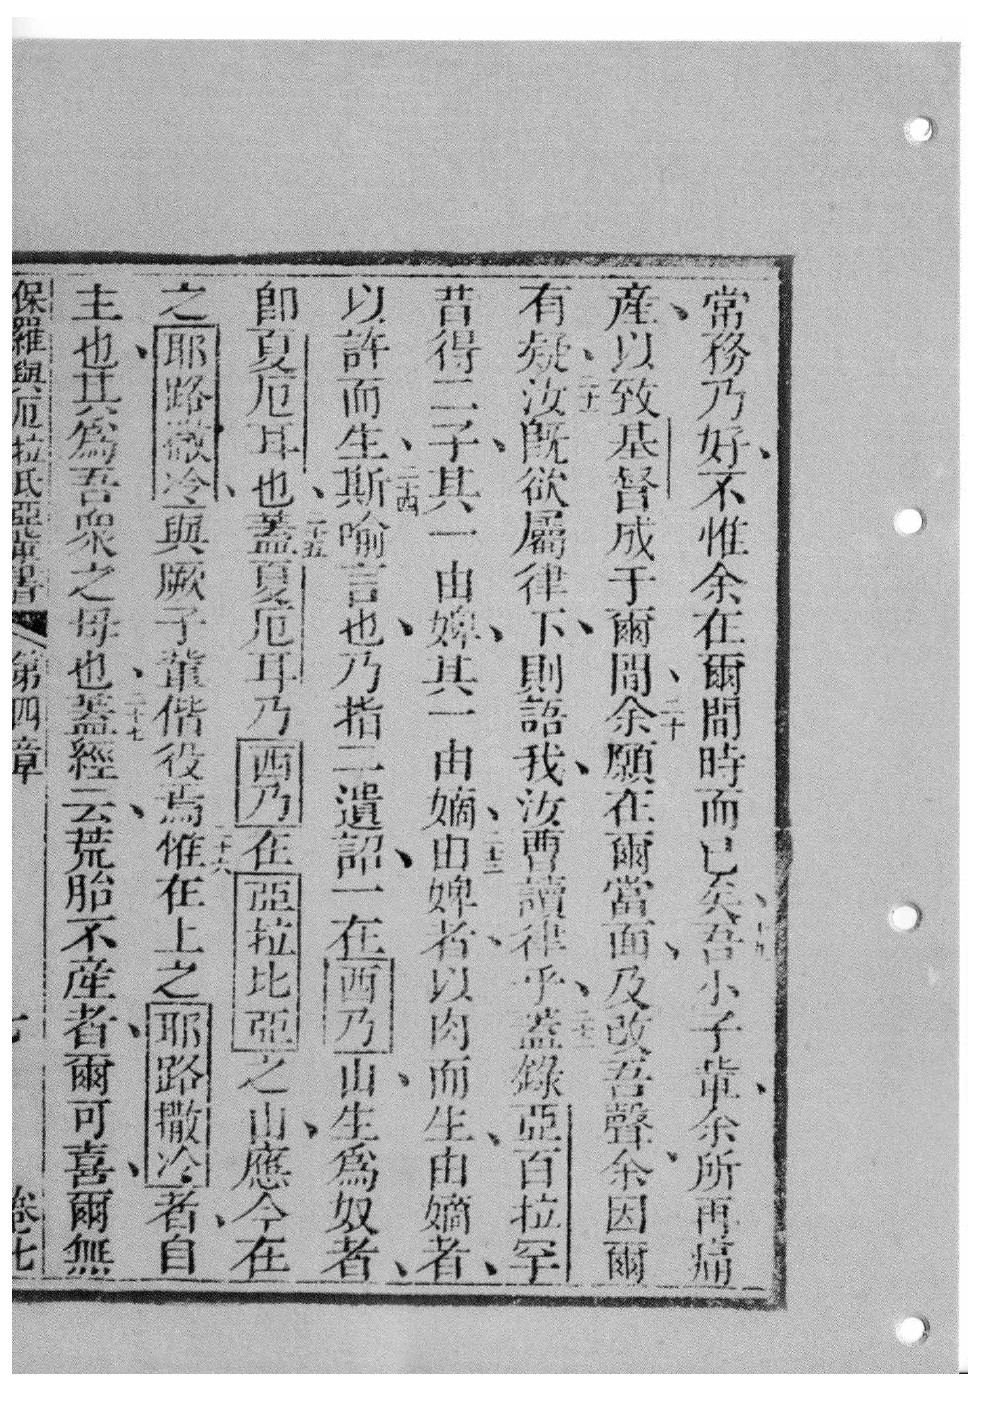 常務乃好不惟余在爾間時而已矣十九吾小子軰余所再痛
產以致基督成于爾間二十余願在爾當面及改吾聲余因爾
有疑二十一汝既欲屬律下則語我汝曹讀律乎二十二蓋錄亞百拉罕
昔得二子其一由婢其一由嫡二十三由婢者以肉而生由嫡者
以許而生二十四斯喻言也乃指二遺詔一在西乃山生為奴者
卽夏厄耳也二十五蓋夏厄耳乃西乃在亞拉比亞之山應今在
之耶路撒冷與厥子軰偕役焉二十六惟在上之耶路撒冷者自
主也其為吾衆之母也二十七蓋經云荒胎不產者爾可喜爾無
保羅與厄拉氏亞輩書 第四章 七 卷七